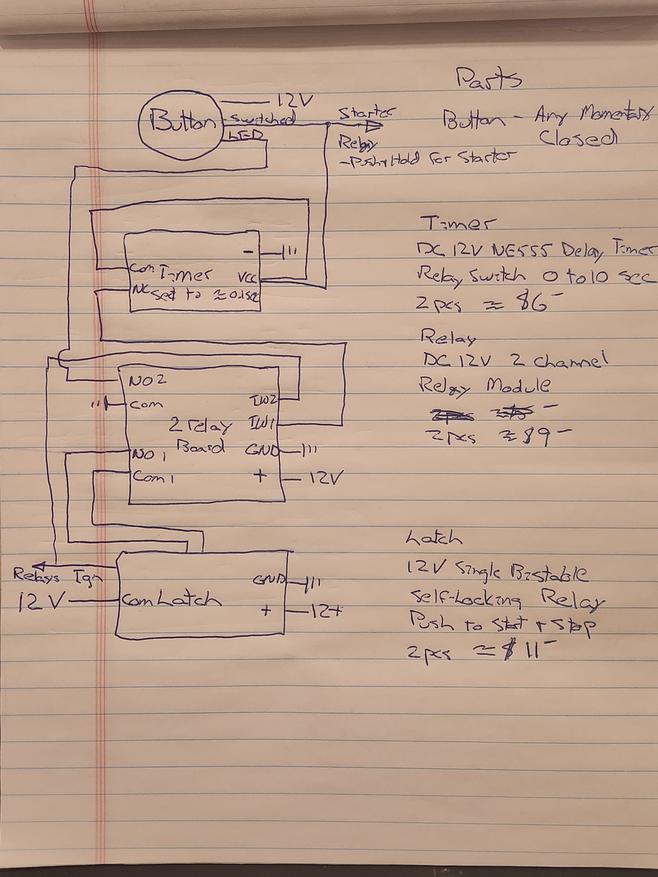 Parts
Button - Any Momentary
Closed
12V
Button
Switched
LED
Starter
Relay
-Push+Hold for Starter
Timer
DC 12V NE555 Delay Timer
Relay Switch 0 to 10 sec
2pcs ≈ $6-
-
Com Timer
VCC
NC set to ≈ 0.1sec
Relay
DC 12V 2 channel
Relay Module
2pcs ≈ $9-
NO2
Com
IW2
2 relay
IW1
Board
GND
NO1
Com1
+
12V
Latch
12V Single Bistable
Self-Locking Relay
Push to Start + Stop
2pcs ≈ $11-
Relays Ign
GND
12V
Com Latch
+
12+